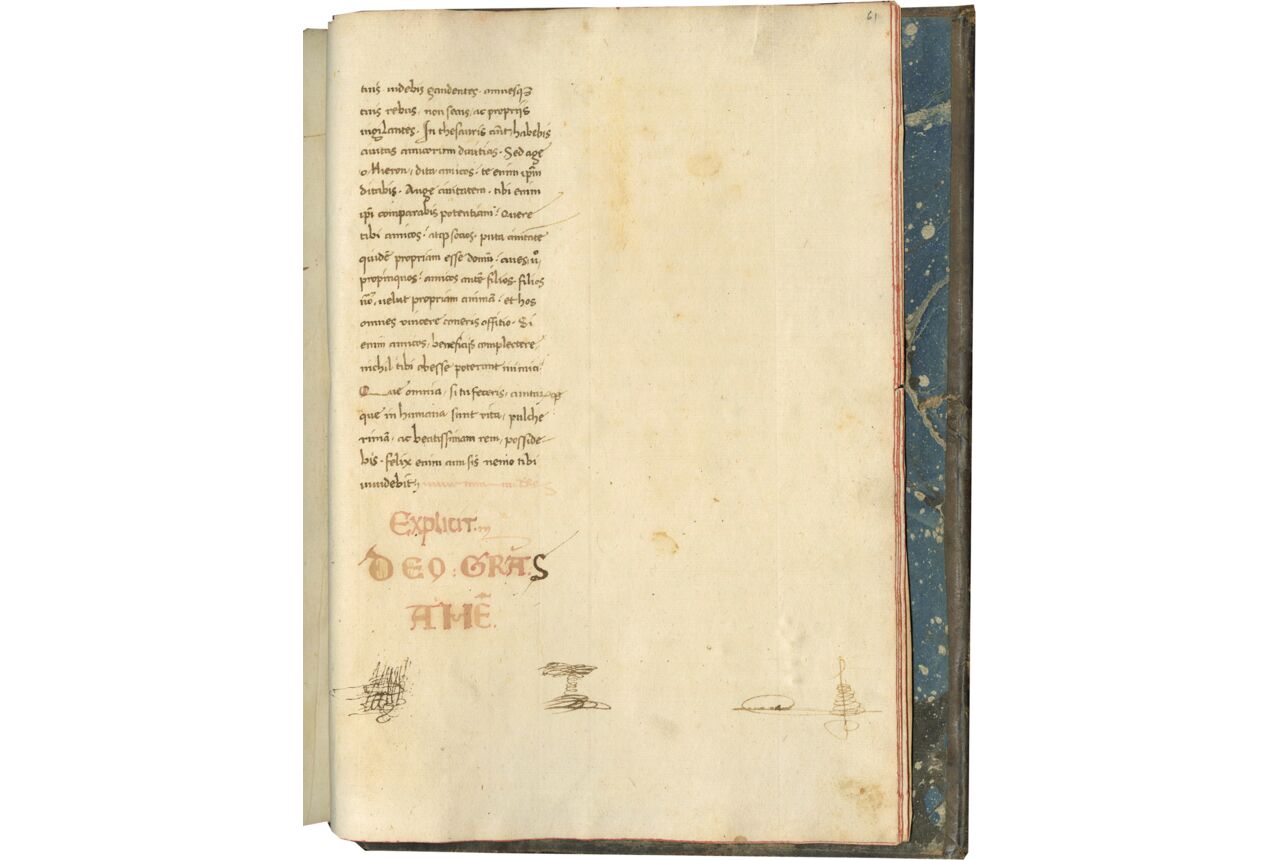 61
tuis uidebis gaudentes. omnesq3
tuis rebus, non secus, ac propriis
uigilantes. In thesauris aũt habebis
cunctas amicorum diuitias. Sed age
o Hieron, dita amicos. te enim ip̃m
ditabis. Auge ciuitatem. tibi enim
ip̃i comparabis potentiam. Quere
tibi amicos. atq; socios. puta ciuitatē
quidē propriam esse domũ. ciues, uº,
propinquos. amicos autē filios. filios
uº, uelut propriam animã. et hos
omnes uincere coneris offitio. Si
enim amicos, beneficijs complectere
nichil tibi obesse poterunt inimici.
Quae omnia, si tu feceris, cunctarum
que in humana sunt uita, pulche
rimã, ac beatissimam rem, posside-
bis. felix enim cum sis nemo tibi
inuidebit;
Explicit.
DEO: GRÃS
AMẼ.